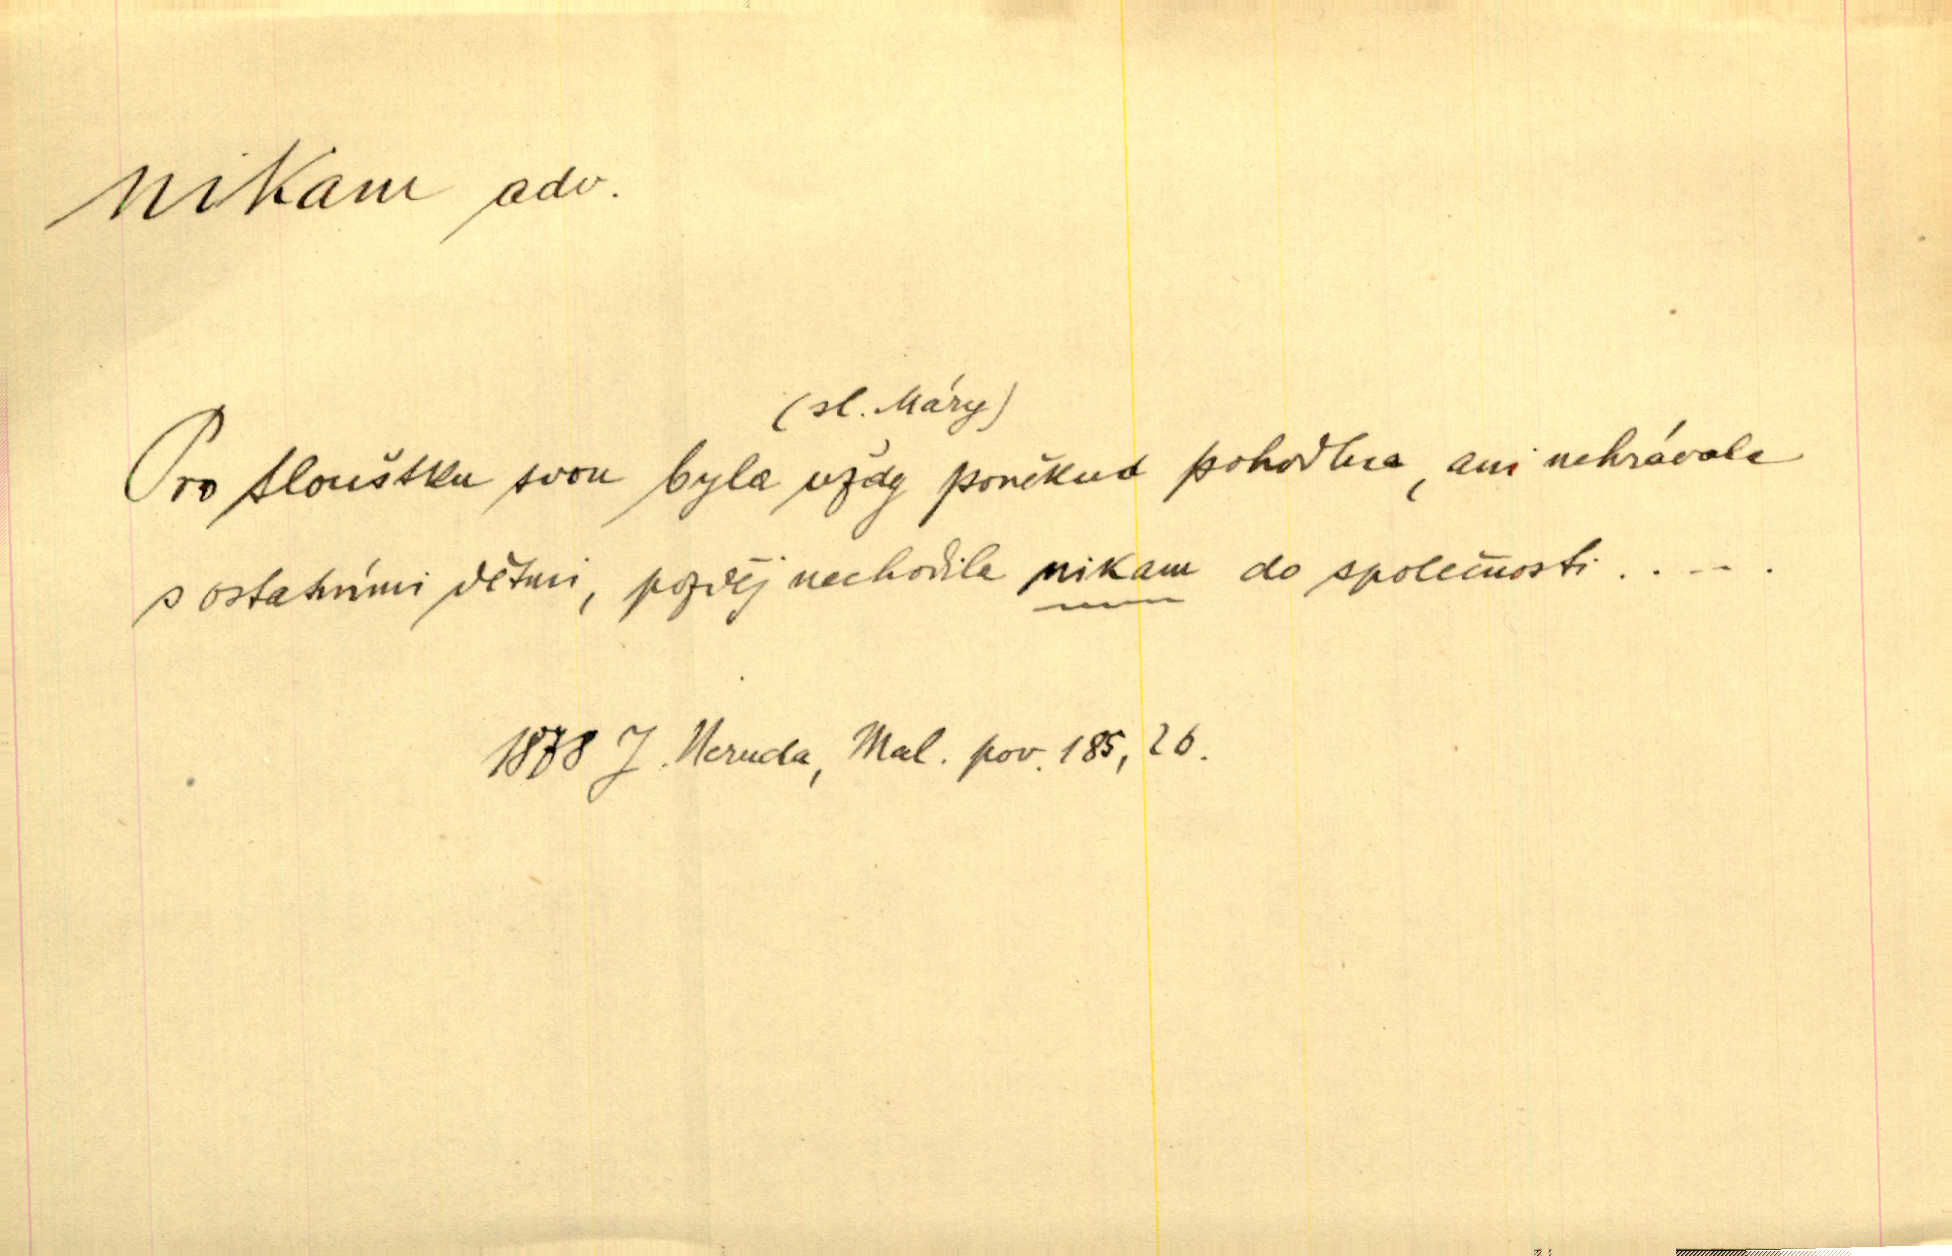 nikam adv.
(sl. Máry)
Pro tloušťku svou byla vždy poněkud pohodlna, ani nehrávala
s ostatními dětmi, pozděj nechodila nikam do společnosti . . – .
1878 J. Neruda, Mal. pov. 185, 26.